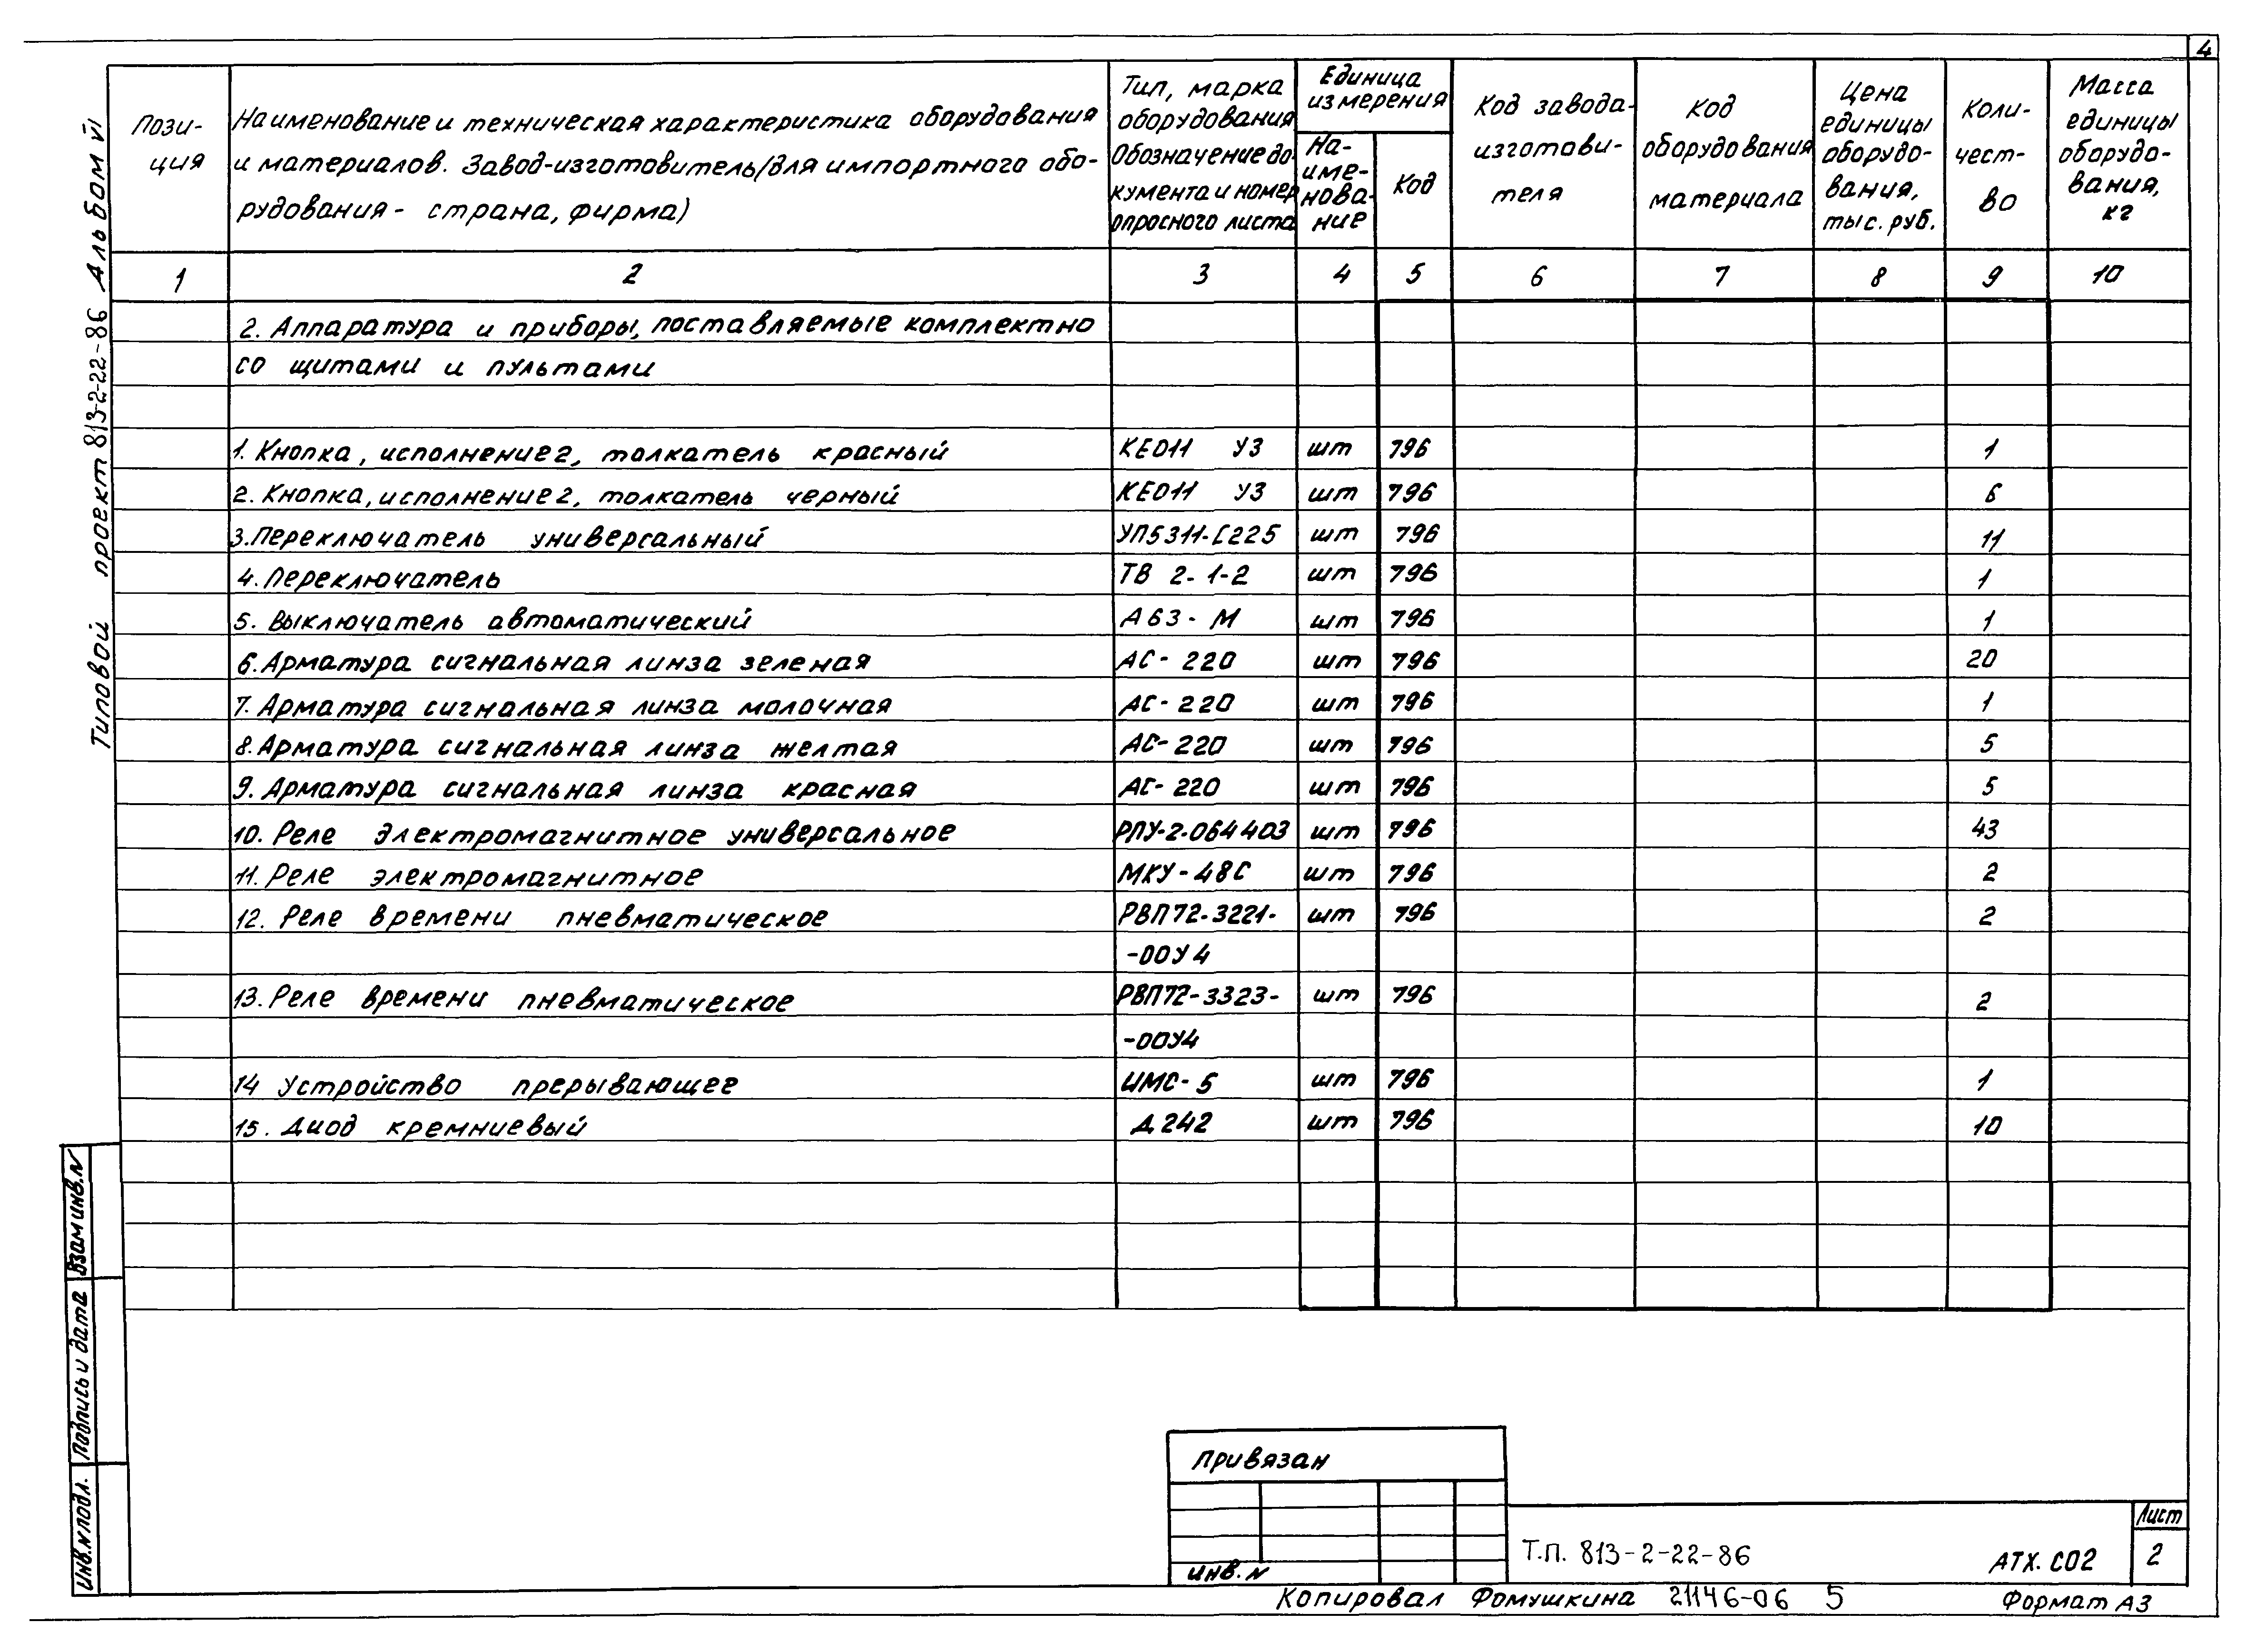 4
Типовой проект 813-2-22-86 Альбом VI
Пози-
ция
Наименование и техническая характеристика оборудования
и материалов. Завод-изготовитель/для импортного обо-
рудования - страна, фирма)
Тип, марка
оборудования
Обозначение до-
кумента и номер
опросного листа
Единица
измерения
На-
име-
нова-
ние
Код
Код завода-
изготови-
теля
Код
оборудования
материала
Цена
единицы
оборудо-
вания,
тыс. руб.
Коли-
чест-
во
Масса
единицы
оборудо-
вания,
кг
1 2 3 4 5 6 7 8 9 10
2. Аппаратура и приборы, поставляемые комплектно
со щитами и пультами
1. Кнопка, исполнение 2, толкатель красный КЕ011 У3 шт 796 1
2. Кнопка, исполнение 2, толкатель черный КЕ011 У3 шт 796 6
3. Переключатель универсальный УП5311-С225 шт 796 11
4. Переключатель ТВ 2-1-2 шт 796 1
5. Выключатель автоматический А63-М шт 796 1
6. Арматура сигнальная линза зеленая АС-220 шт 796 20
7. Арматура сигнальная линза молочная АС-220 шт 796 1
8. Арматура сигнальная линза желтая АС-220 шт 796 5
9. Арматура сигнальная линза красная АС-220 шт 796 5
10. Реле электромагнитное универсальное РПУ-2-064403 шт 796 43
11. Реле электромагнитное МКУ-48С шт 796 2
12. Реле времени пневматическое РВП72-3221- шт 796 2
-00У4
13. Реле времени пневматическое РВП72-3323- шт 796 2
-00У4
14 Устройство прерывающее ИМС-5 шт 796 1
15. Диод кремниевый Д242 шт 796 10
Взам инв. N
Подпись и дата
Инв. N подл.
Привязан
Инв. N
Т.П. 813-2-22-86 АТХ. СО2
Лист
2
Копировал Фомушкина 21146-06 5 Формат А3